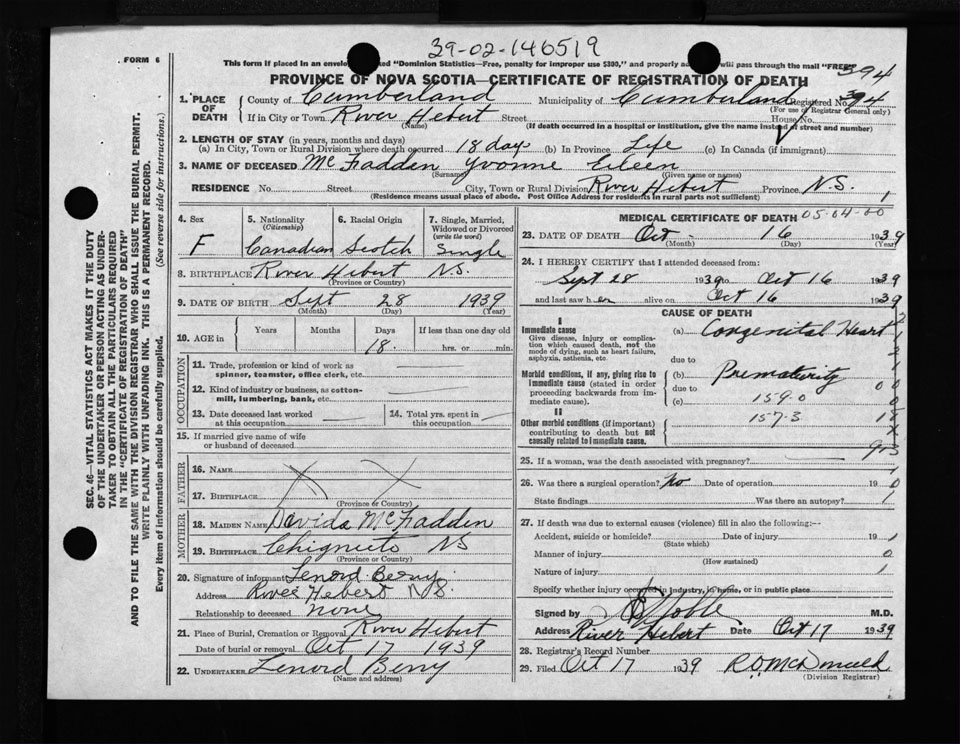 39-02-146519
FORM 6
This form if placed in an envelope marked "Dominion Statistics—Free, penalty for improper use $300," and properly addressed will pass through the mail "FREE"
394
PROVINCE OF NOVA SCOTIA—CERTIFICATE OF REGISTRATION OF DEATH
1. PLACE OF DEATH
County of Cumberland Municipality of Cumberland Registered No. 394
(For use of Registrar General only)
If in City or Town River Hebert Street House No.
(Name) (If death occurred in a hospital or institution, give the name instead of street and number)
2. LENGTH OF STAY (in years, months and days)
(a) In City, Town or Rural Division where death occurred 18 days (b) In Province Life (c) In Canada (if immigrant)
3. NAME OF DECEASED McFadden Yvonne Eileen
(Surname) (Given name or names)
RESIDENCE No. Street City, Town or Rural Division River Hebert Province N.S.
(Residence means usual place of abode. Post Office Address for residents in rural parts not sufficient) 1
4. Sex
F
5. Nationality
(Citizenship)
Canadian
6. Racial Origin
Scotch
7. Single, Married, Widowed or Divorced
(write the word)
Single
8. BIRTHPLACE River Hebert N.S.
(Province or Country)
9. DATE OF BIRTH Sept 28 1939
(Month) (Day) (Year)
10. AGE in Years Months Days If less than one day old
18 hrs. or min.
OCCUPATION
11. Trade, profession or kind of work as
spinner, teamster, office clerk, etc.
12. Kind of industry or business, as cotton-
mill, lumbering, bank, etc.
13. Date deceased last worked
at this occupation
14. Total yrs. spent in
this occupation
15. If married give name of wife
or husband of deceased
FATHER
16. NAME X X
17. BIRTHPLACE
(Province or Country)
MOTHER
18. MAIDEN NAME Davida McFadden
19. BIRTHPLACE Chignecto NS
(Province or Country)
20. Signature of informant Lenord Berry
Address River Hebert N.S.
Relationship to deceased none
21. Place of Burial, Cremation or Removal River Hebert
Date of burial or removal Oct 17 1939
22. UNDERTAKER Lenord Berry
(Name and address)
MEDICAL CERTIFICATE OF DEATH 05-04-00
23. DATE OF DEATH Oct - 16 1939
(Month) (Day) (Year)
24. I HEREBY CERTIFY that I attended deceased from:
Sept 28 1939 to Oct 16 1939
and last saw her alive on Oct 16 1939
CAUSE OF DEATH
I
Immediate cause
Give disease, injury or complica-
tion which caused death, not the
mode of dying, such as heart failure,
asphyxia, asthenia, etc.
(a) Congenital Heart
due to
Morbid conditions, if any, giving rise to
immediate cause (stated in order
proceeding backwards from im-
mediate cause).
(b) Prematurity
due to
(c) 159-0
II
Other morbid conditions (if important)
contributing to death but not
causally related to immediate cause.
157-3
25. If a woman, was the death associated with pregnancy?
26. Was there a surgical operation? No Date of operation 19
State findings Was there an autopsy?
27. If death was due to external causes (violence) fill in also the following:—
Accident, suicide or homicide? Date of injury 19
(State which)
Manner of injury
(How sustained)
Nature of injury
Specify whether injury occurred in industry, in home, or in public place
Signed by M.D.
Address River Hebert Date Oct 17 1939
28. Registrar's Record Number
29. Filed Oct 17 1939
(Division Registrar)
SEC. 46—VITAL STATISTICS ACT MAKES IT THE DUTY
OF THE UNDERTAKER OR PERSON ACTING AS UNDER-
TAKER TO OBTAIN ALL THE PARTICULARS REQUIRED
IN THE "CERTIFICATE OF REGISTRATION OF DEATH"
AND TO FILE THE SAME WITH THE DIVISION REGISTRAR WHO SHALL ISSUE THE BURIAL PERMIT.
WRITE PLAINLY WITH UNFADING INK. THIS IS A PERMANENT RECORD.
Every item of information should be carefully supplied. (See reverse side for instructions.)